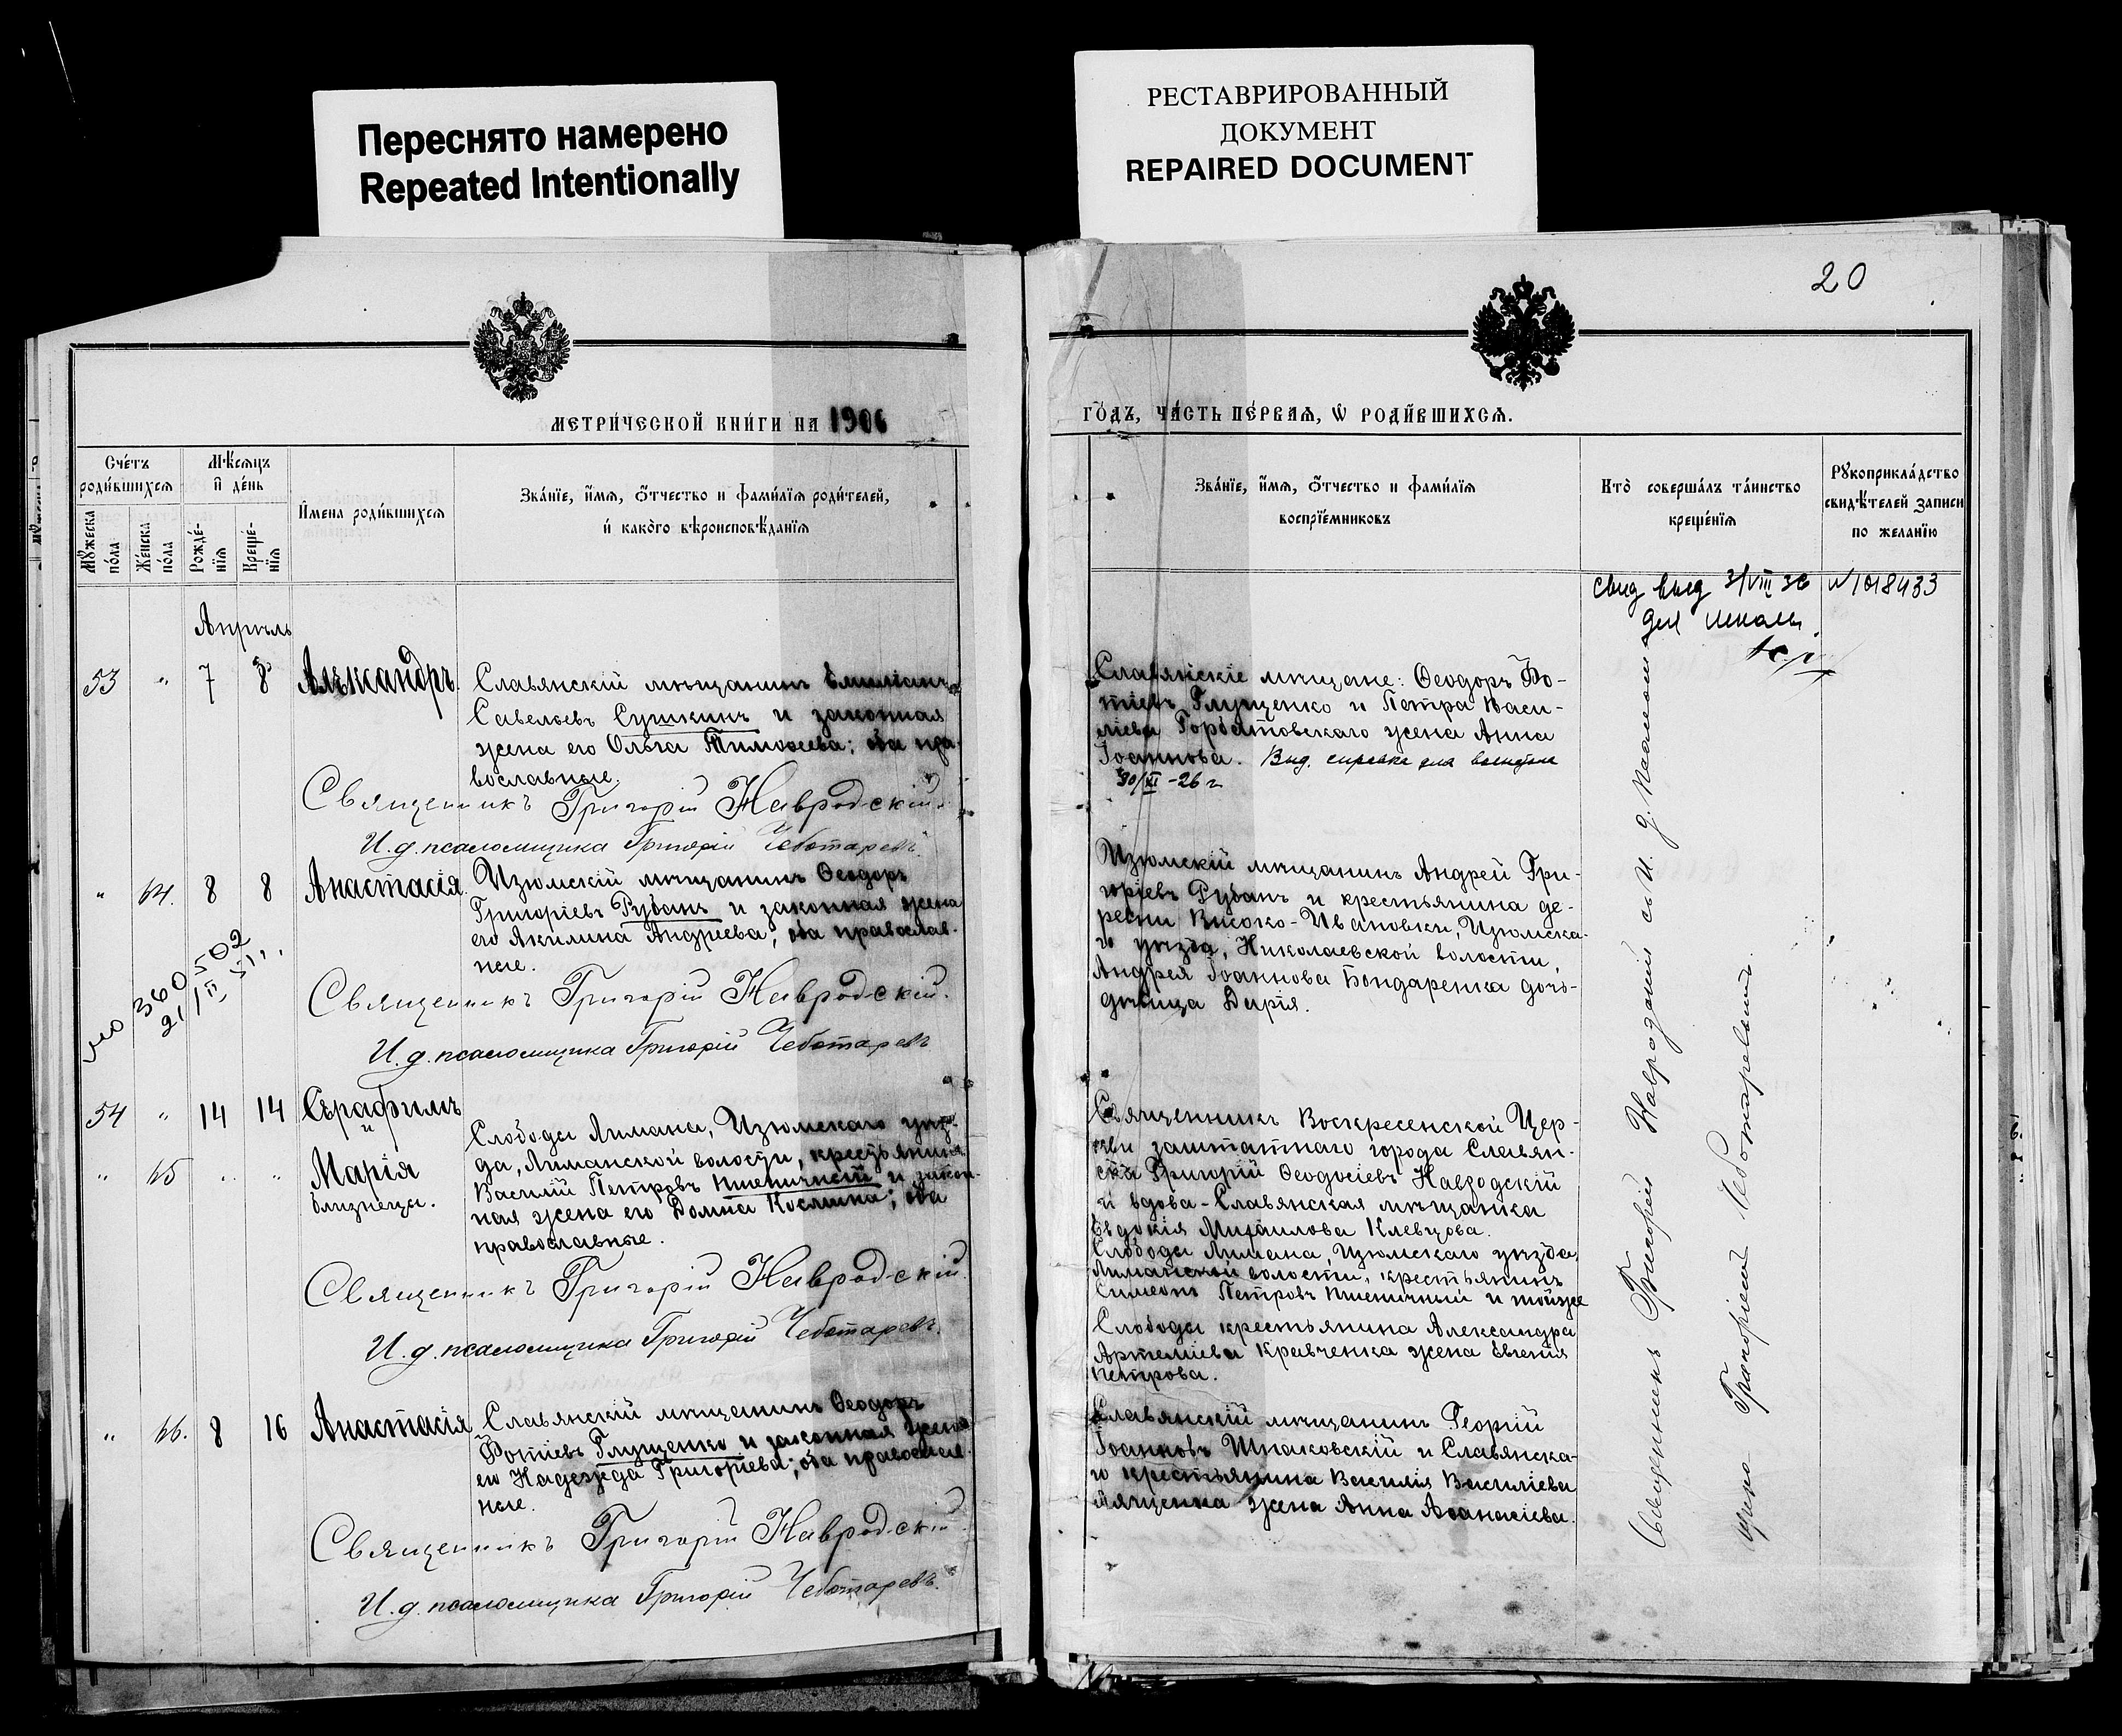 Переснято намерено
Repeated Intentionally
РЕСТАВРИРОВАННЫЙ
ДОКУМЕНТ
REPAIRED DOCUMENT
20
МЕТРИ́ЧЕСКОЙ КНИ́ГИ НА 1906
ГО́ДЪ, ЧА́СТЬ ПЕ́РВАЯ, Ѡ РОДИ́ВШИХСЯ.
Сче́тъ роди́вшихся
Мꙋжеска по́ла
Же́нска по́ла
Мѣ́сяцъ и де́нь
Рожде́нїя
Креще́нїя
И́мена роди́вшихся
Зва́нїе, и́мя, ѻ́тчество и фами́лїя роди́телей,
и како́го вѣроисповѣ́данїя
Зва́нїе, и́мя, ѻ́тчество и фами́лїя
воспрїе́мниковъ
Кто̀ соверша́лъ та́инство
креще́нїя
Рꙋкоприкла́дство
свидѣ́телей записи
по жела́нїю
свид выд 31/VIII 36 №1018433
для школы
Апрѣль
53 " 7 8 Александръ.
Славянскій мѣщанинъ Емиліанъ
Савельевъ Сушкинъ и законная
жена его Ольга Тимоѳеева; оба пра-
вославные.
Священникъ Григорій Навродскій.
И. д. псаломщика Григорій Чеботаревъ.
Славянскіе мѣщане: Ѳеодоръ Фо-
тіевъ Глущенко и Петра Васи-
ліева Горбатовскаго жена Анна
Іоаннова. Выд. справка для
30/XI-26 г
" 64. 8 8 Анастасія.
Изюмскій мѣщанинъ Ѳеодоръ
Григоріевъ Рубанъ и законная жена
его Акилина Андреева; оба православ-
ные.
Священникъ Григорій Навродскій.
И. д. псаломщика Григорій Чеботаревъ
360 502
21/II 51
Изюмскій мѣщанинъ Андрей Гри-
горіевъ Рубанъ и крестьянина де-
ревни Високо-Ивановки, Изюмска-
го уѣзда, Николаевской волости,
Андрея Іоаннова Бондаренка дочь-
дѣвица Дарія.
54 " 14 14 Серафимъ
и
" 65 " " Марія
близнецы.
Слободы Лимана, Изюмскаго уѣз-
да, Лиманской волости, крестьянинъ
Василій Петровъ Пшеничный и закон-
ная жена его Домна Космина; оба
православные.
Священникъ Григорій Навродскій.
И. д. псаломщика Григорій Чеботаревъ.
Священникъ Воскресенской Цер-
кви заштатнаго города Славян-
ска Григорій Ѳеодосіевъ Навродскій
и вдова-Славянская мѣщанка
Евдокія Михаилова Клевцова.
Слободы Лимана, Изюмскаго уѣзда,
Лиманской волости, крестьянинъ
Симеонъ Петровъ Пшеничный и тойже
Слободы крестьянина Александра
Артеміева Кравченка жена Евгенія
Петрова.
" 66. 8 16 Анастасія
Славянскій мѣщанинъ Ѳеодоръ
Фотіевъ Глущенко и законная жена
его Надежда Григоріева; оба православ-
ные.
Священникъ Григорій Навродскій.
И. д. псаломщика Григорій Чеботаревъ.
Славянскій мѣщанинъ Георгій
Іоанновъ Шпаковскій и Славянска-
го крестьянина Василія Васильева
Ященка жена Анна Аѳанасіева.
Священникъ Григорій Навродскій съ И. д. псалом-
щика Григоріемъ Чеботаревымъ.